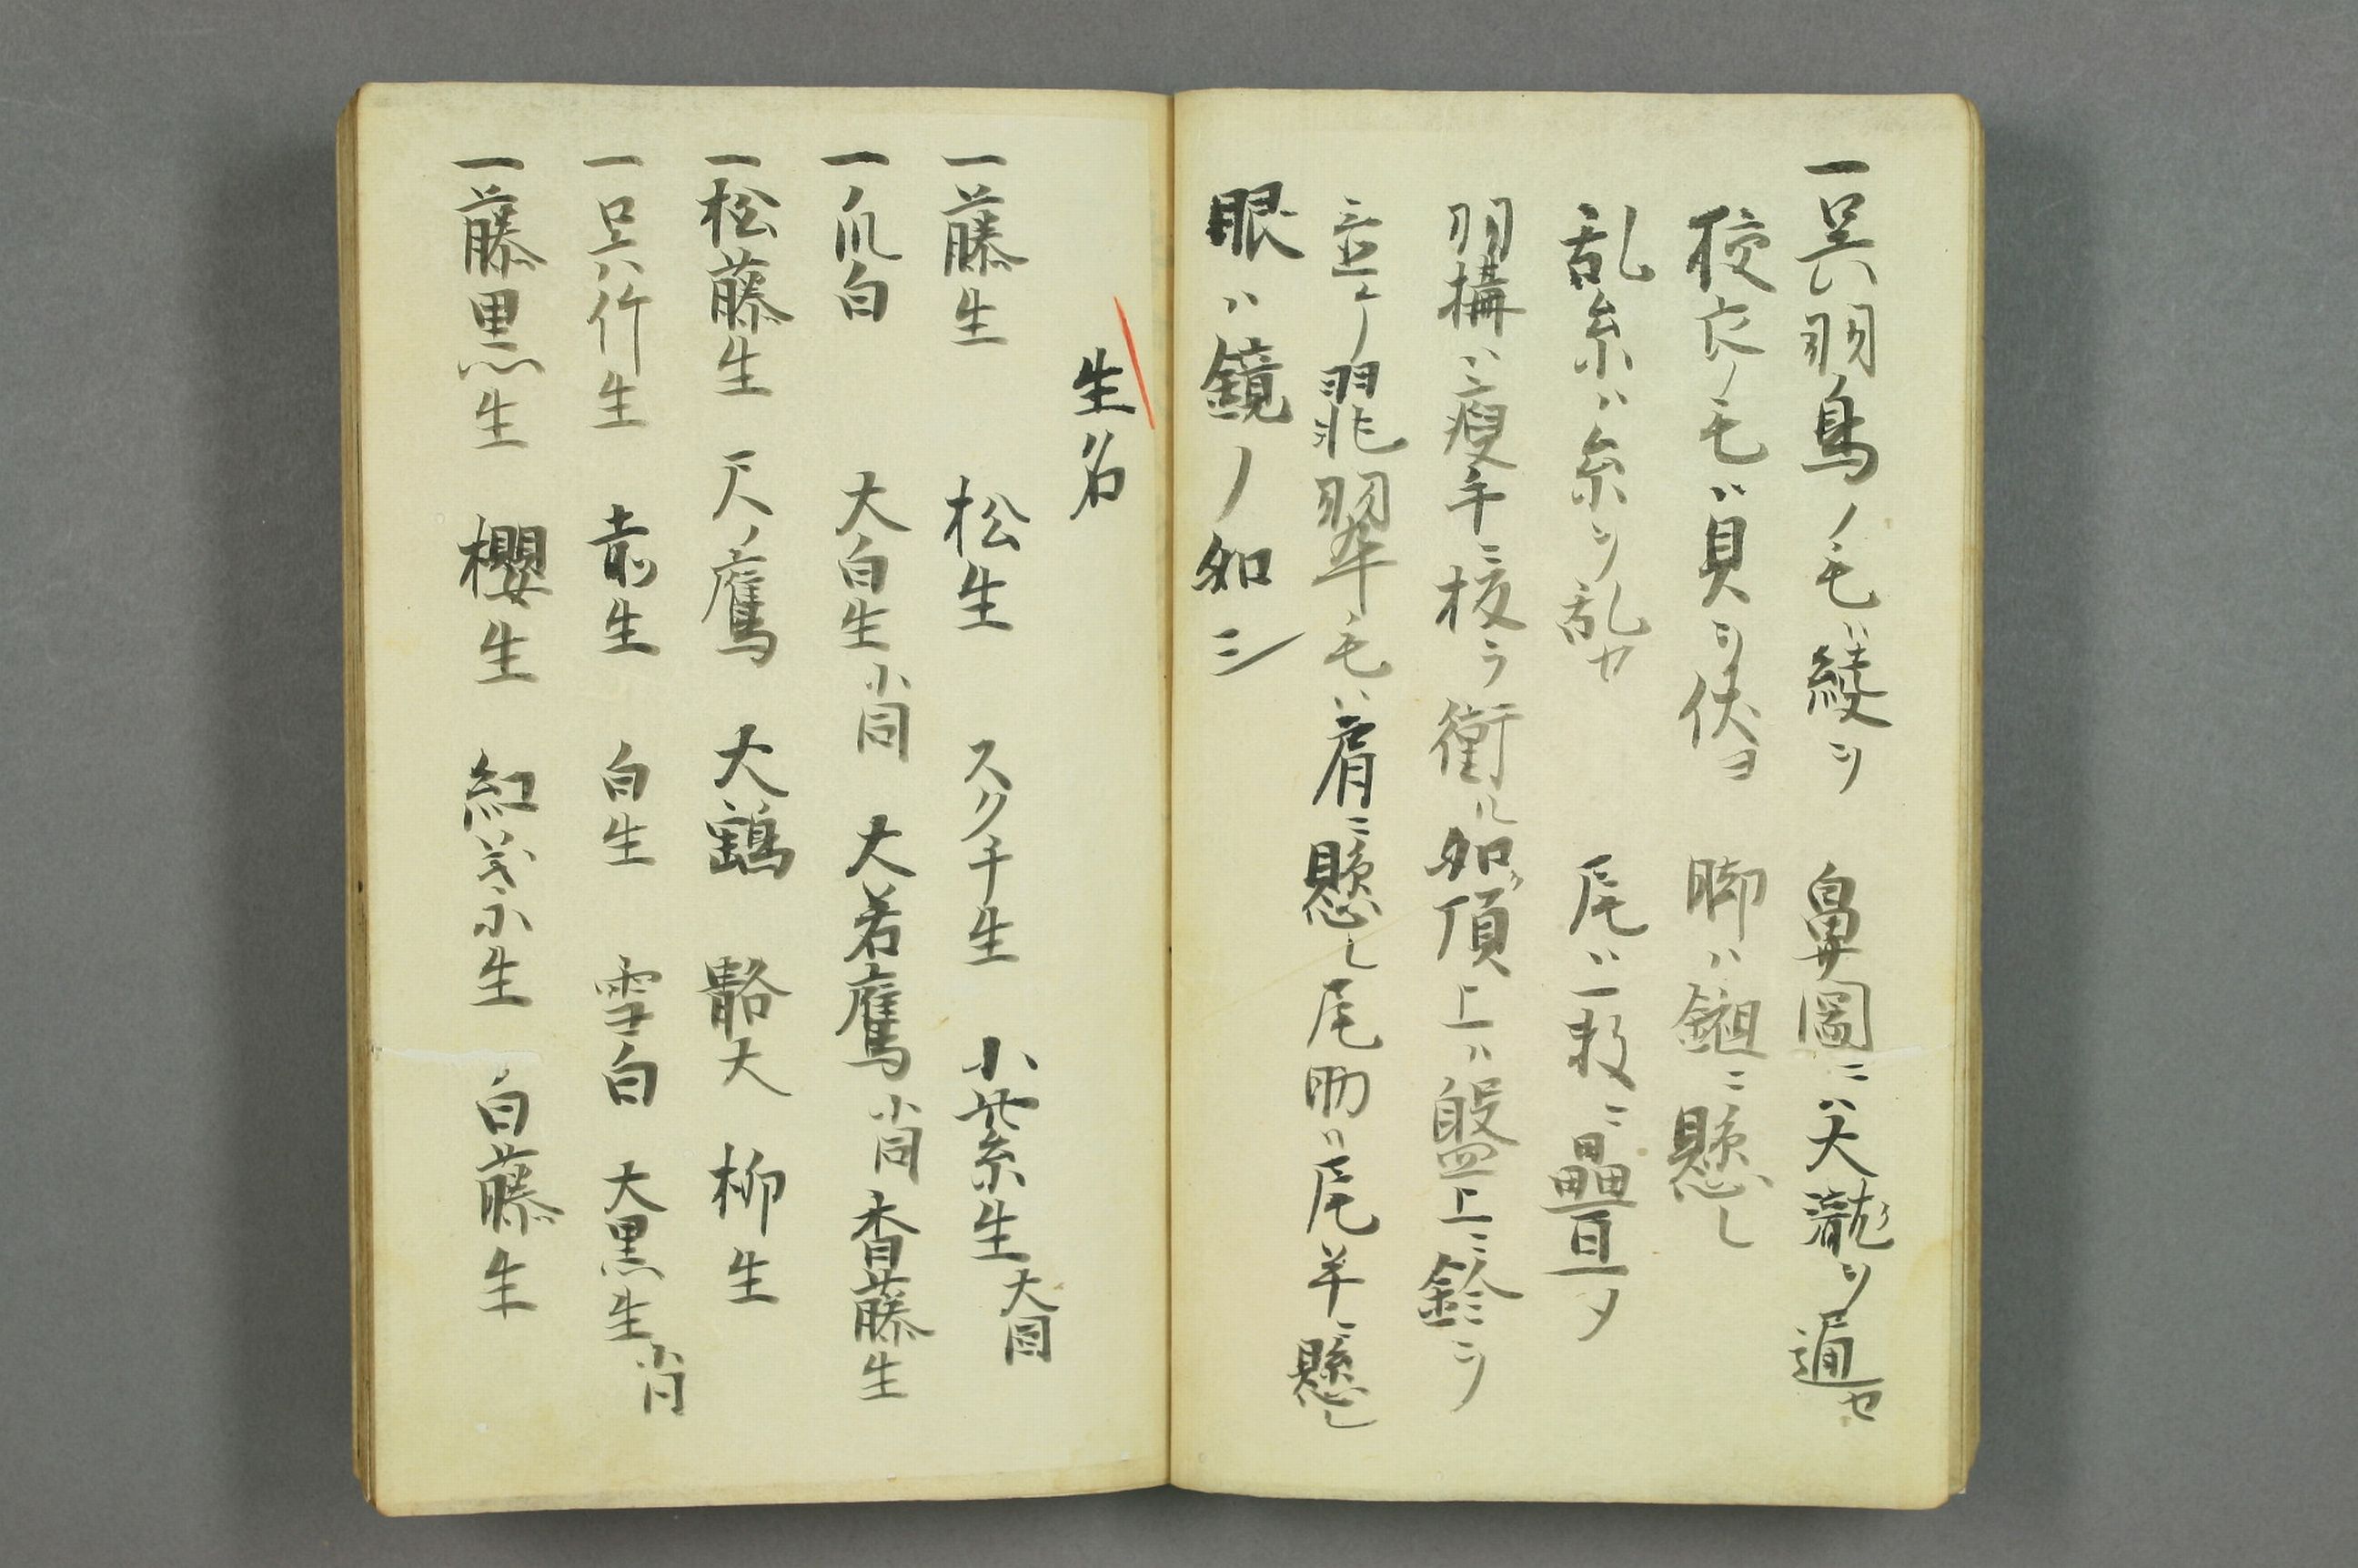 一呉羽鳥ノ毛ハ綾ヲ 鼻圖ニハ大瀧ヲ通セ
校衣ノ毛ハ貝ヲ伏ヨ 脚ハ鎺ニ懸し
乱糸ハ糸ヲ乱セ 尾ハ一
羽構ハ瘦手ニ 如 頂上ハ盤上ニ鈴ヲ
翡翠毛ハ肩ニ懸し尾助ハ尾羊ニ懸し
眼ハ鏡ノ如シ
生名
一藤生 松生 スクチ生 小紫生大同
一爪白 大白生小同 大若鷹小同 杳藤生
一松藤生 尺ノ鷹 大鶴 骼大 柳生
一呉竹生 赤生 白生 雪白 大黒生小同
一藤黒生 櫻生 紅 生 白藤生